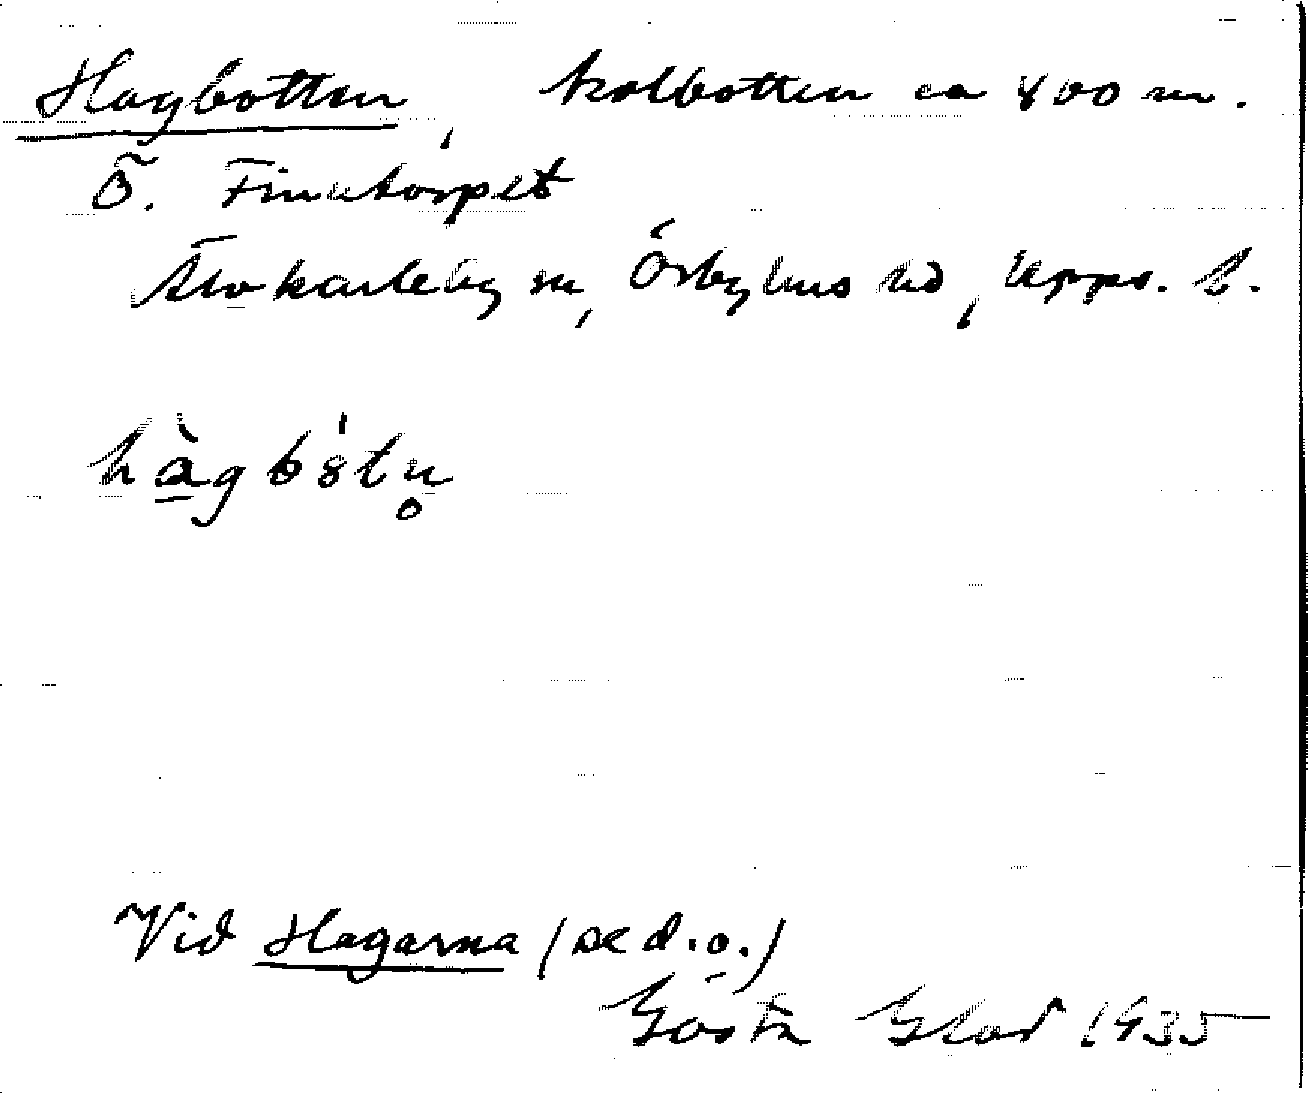 Hagbotten, kolbotten ca 400 m.
Ö. Finntorpet
Älvkarleby sn, Örbyhus hd, Upps. l.
hàgbòtn̥
Vid Hagarna (se d. o.)
Gösta Glad 1935